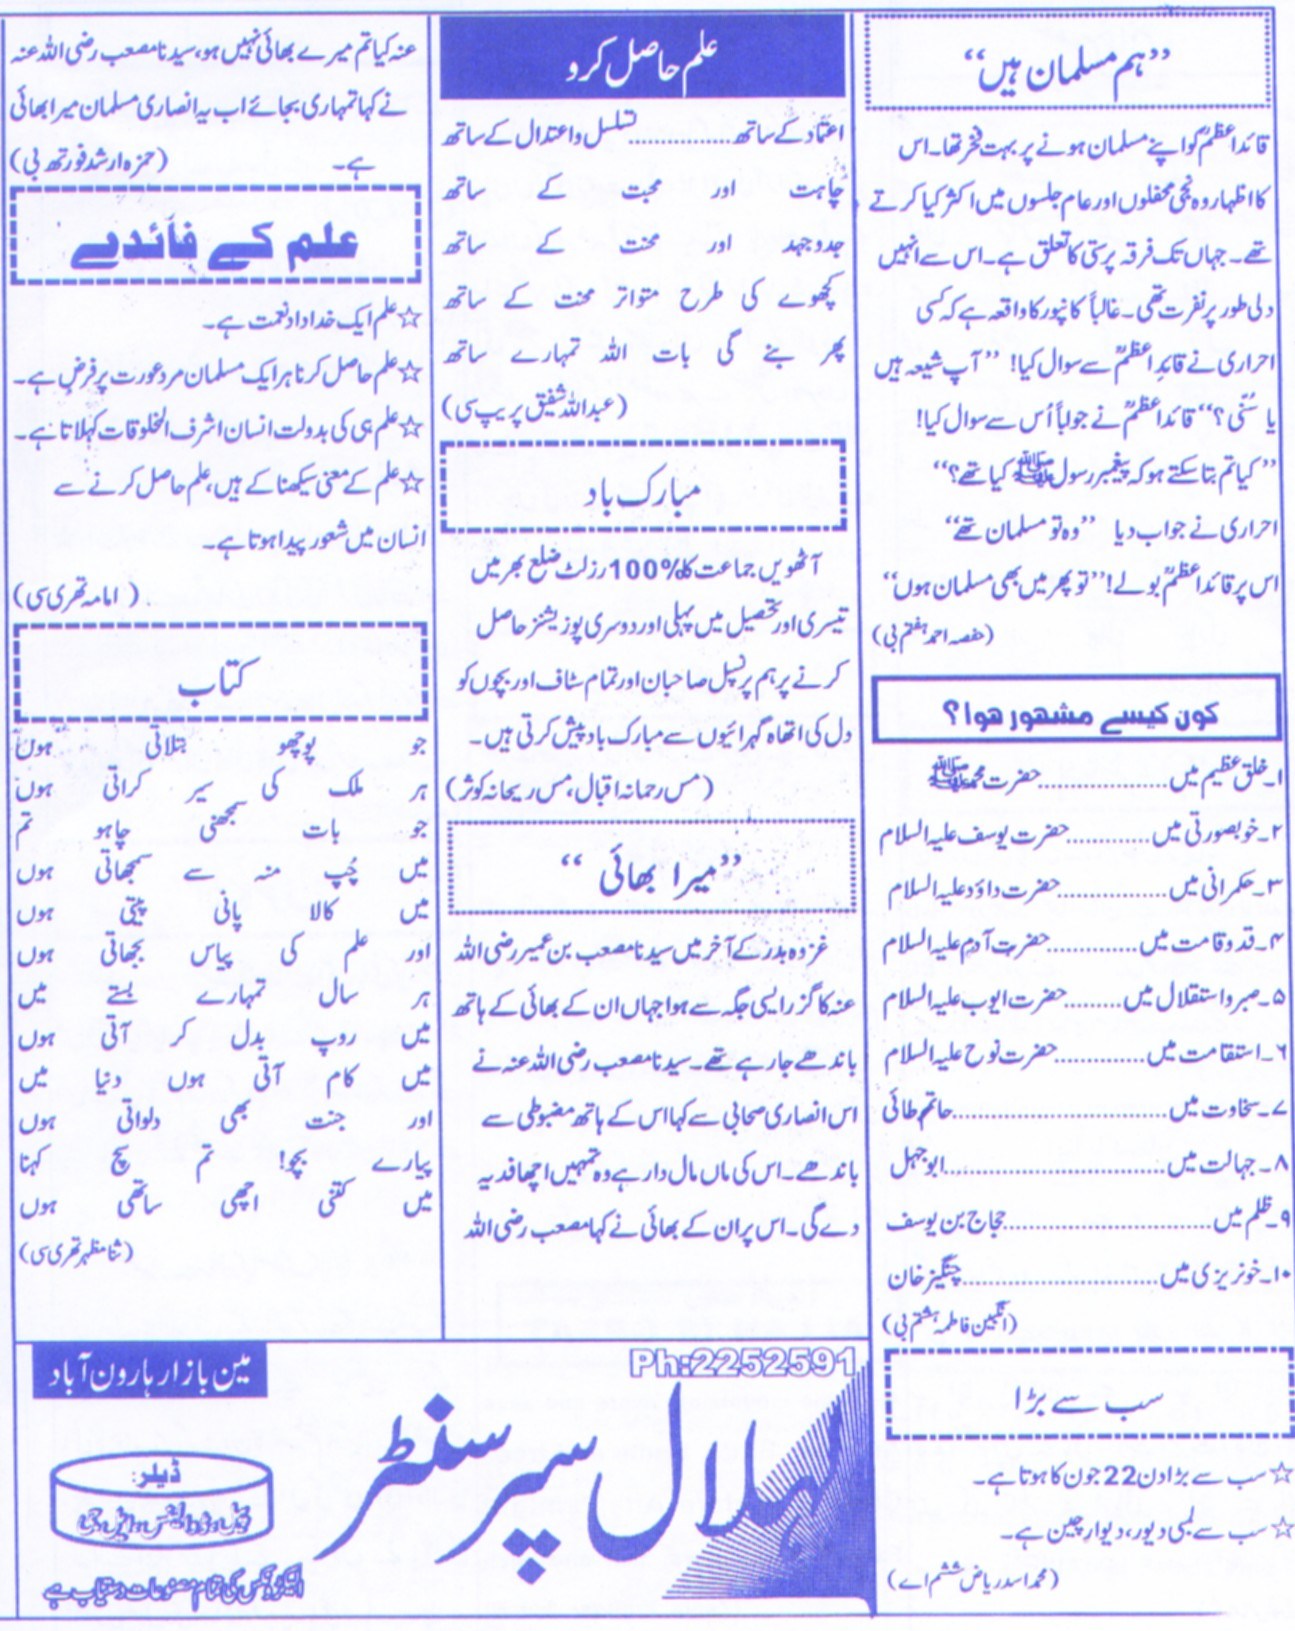 ”ہم مسلمان ہیں“
قائداعظمؒ کو اپنے مسلمان ہونے پر بہت فخر تھا۔اس
کا اظہار وہ نجی محفلوں اور عام جلسوں میں اکثر کیا کرتے
تھے۔ جہاں تک فرقہ پرستی کا تعلق ہے۔اس سے انہیں
دلی طور پر نفرت تھی۔غالباً کانپور کا واقعہ ہے کہ کسی
احراری نے قائدِاعظمؒ سے سوال کیا! ”آپ شیعہ ہیں
یا سُنّی؟“ قائداعظمؒ نے جواباً اُس سے سوال کیا!
”کیا تم بتا سکتے ہو کہ پیغمبر رسول ﷺ کیا تھے؟“
احراری نے جواب دیا ”وہ تو مسلمان تھے“
اس پر قائداعظمؒ بولے! ”تو پھر میں بھی مسلمان ہوں“
(حفصہ احمد ہفتم بی)
کون کیسے مشہور ہوا؟
۱۔خلق عظیم میں..................حضرت محمدﷺ
۲۔خوبصورتی میں..........حضرت یوسف علیہ السلام
۳۔حکمرانی میں............حضرت داؤد علیہ السلام
۴۔قدوقامت میں............حضرت آدم علیہ السلام
۵۔صبر واستقلال میں........حضرت ایوب علیہ السلام
۶۔استقامت میں............حضرت نوح علیہ السلام
۷۔سخاوت میں............................حاتم طائی
۸۔ جہالت میں............................ابوجہل
۹۔ظلم میں............................حجاج بن یوسف
۱۰۔خونریزی میں..........................چنگیز خان
(انگبین فاطمہ ہشتم بی)
سب سے بڑا
☆سب سے بڑا دن 22 جون کا ہوتا ہے۔
☆سب سے لمبی دیور، دیوار چین ہے۔
(محمد اسد ریاض ششم اے)
علم حاصل کرو
اعتماد کے ساتھ..............تسلسل واعتدال کے ساتھ
چاہت اور محبت کے ساتھ
جدوجہد اور محنت کے ساتھ
کچھوے کی طرح متواتر محنت کے ساتھ
پھر بنے گی بات اللہ تمہارے ساتھ
(عبداللہ شفیق پریپ سی)
مبارک باد
آٹھویں جماعت کا 100% رزلٹ ضلع بھر میں
تیسری اور تحصیل میں پہلی اور دوسری پوزیشنز حاصل
کرنے پر ہم پرنسپل صاحبان اور تمام سٹاف اور بچوں کو
دل کی اتھاہ گہرائیوں سے مبارک باد پیش کرتی ہیں۔
(مس رحمانہ اقبال، مس ریحانہ کوثر)
”میرا بھائی“
غزوہ بدر کے آخر میں سیدنا مصعب بن عمیر رضی اللہ
عنہ کا گزر ایسی جگہ سے ہوا جہاں ان کے بھائی کے ہاتھ
باندھے جا رہے تھے۔ سیدنا مصعب رضی اللہ عنہ نے
اس انصاری صحابی سے کہا اس کے ہاتھ مضبوطی سے
باندھے۔ اس کی ماں مال دار ہے وہ تمہیں اچھا فدیہ
دے گی۔ اس پر ان کے بھائی نے کہا مصعب رضی اللہ
عنہ کیا تم میرے بھائی نہیں ہو، سیدنا مصعب رضی اللہ عنہ
نے کہا تمہاری بجائے اب یہ انصاری مسلمان میرا بھائی
ہے۔ (حمزہ ارشد فورتھ بی)
علم کے فائدے
☆علم ایک خداداد نعمت ہے۔
☆علم حاصل کرنا ہر ایک مسلمان مرد عورت پر فرض ہے۔
☆علم ہی کی بدولت انسان اشرف المخلوقات کہلاتا ہے۔
☆علم کے معنی سیکھنا کے ہیں، علم حاصل کرنے سے
انسان میں شعور پیدا ہوتا ہے۔
(امامہ تھری سی)
کتاب
جو پوچھو بتلاتی ہوں
ہر ملک کی سیر کراتی ہوں
جو بات سمجھنی چاہو تم
میں چُپ منہ سے سمجھاتی ہوں
میں کالا پانی پیتی ہوں
اور علم کی پیاس بجھاتی ہوں
ہر سال تمہارے بستے میں
میں روپ بدل کر آتی ہوں
میں کام آتی ہوں دنیا میں
اور جنت بھی دلواتی ہوں
پیارے بچو! تم سچ کہنا
میں کتنی اچھی ساتھی ہوں
(ثنا مظہر تھری سی)
Ph:2252591
مین بازار ہارون آباد
ہلال سپر سنٹر
ڈیلر:
الیکٹرونکس کی تمام مصنوعات دستیاب ہے